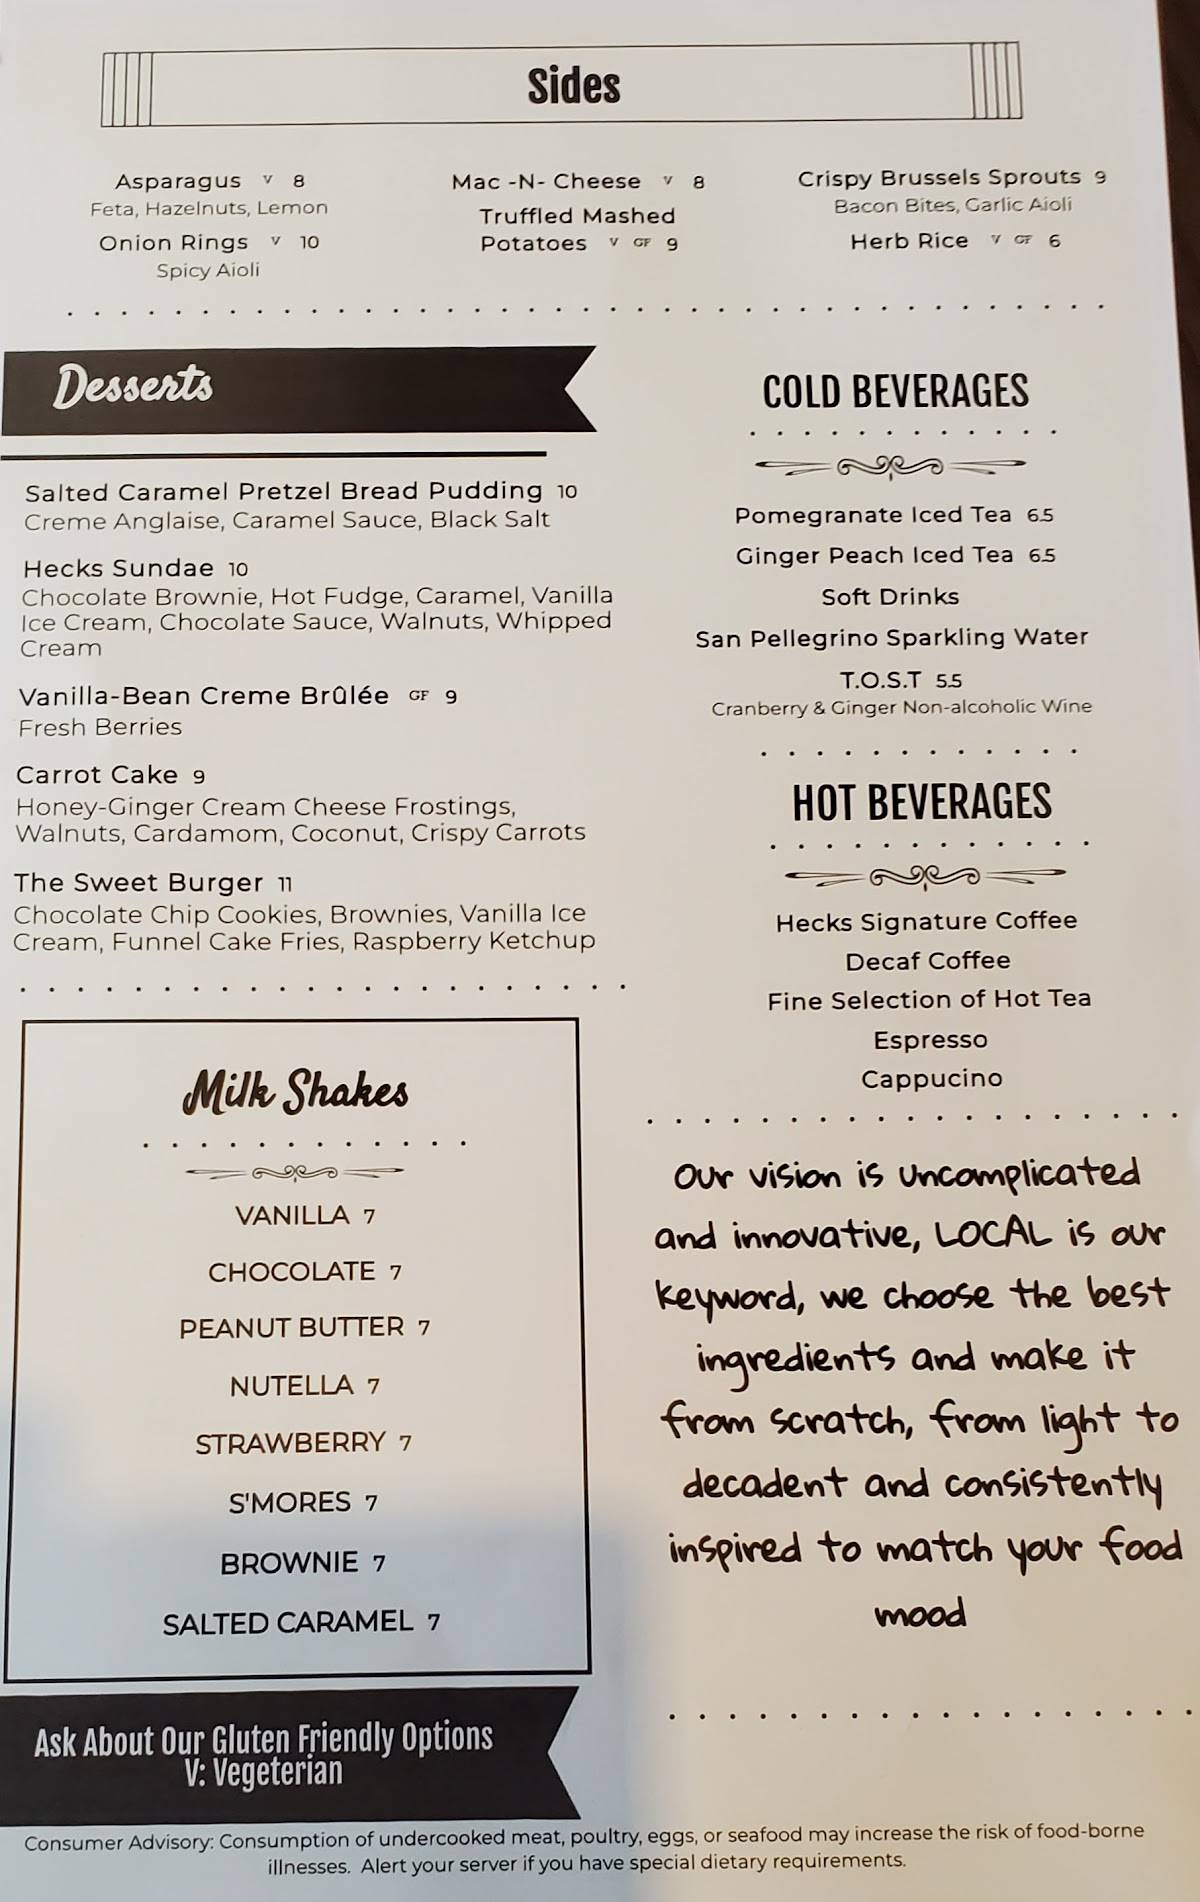 Sides
Asparagus V 8
Feta, Hazelnuts, Lemon
Onion Rings V 10
Spicy Aioli
Mac -N- Cheese V 8
Truffled Mashed
Potatoes V GF 9
Crispy Brussels Sprouts 9
Bacon Bites, Garlic Aioli
Herb Rice V GF 6
Desserts
Salted Caramel Pretzel Bread Pudding 10
Creme Anglaise, Caramel Sauce, Black Salt
Hecks Sundae 10
Chocolate Brownie, Hot Fudge, Caramel, Vanilla
Ice Cream, Chocolate Sauce, Walnuts, Whipped
Cream
Vanilla-Bean Creme Brûlée GF 9
Fresh Berries
Carrot Cake 9
Honey-Ginger Cream Cheese Frostings,
Walnuts, Cardamom, Coconut, Crispy Carrots
The Sweet Burger 11
Chocolate Chip Cookies, Brownies, Vanilla Ice
Cream, Funnel Cake Fries, Raspberry Ketchup
Milk Shakes
VANILLA 7
CHOCOLATE 7
PEANUT BUTTER 7
NUTELLA 7
STRAWBERRY 7
S'MORES 7
BROWNIE 7
SALTED CARAMEL 7
Ask About Our Gluten Friendly Options
V: Vegeterian
COLD BEVERAGES
Pomegranate Iced Tea 6.5
Ginger Peach Iced Tea 6.5
Soft Drinks
San Pellegrino Sparkling Water
T.O.S.T 5.5
Cranberry & Ginger Non-alcoholic Wine
HOT BEVERAGES
Hecks Signature Coffee
Decaf Coffee
Fine Selection of Hot Tea
Espresso
Cappucino
Our vision is uncomplicated
and innovative, LOCAL is our
keyword, we choose the best
ingredients and make it
from scratch, from light to
decadent and consistently
inspired to match your food
mood
Consumer Advisory: Consumption of undercooked meat, poultry, eggs, or seafood may increase the risk of food-borne
illnesses. Alert your server if you have special dietary requirements.